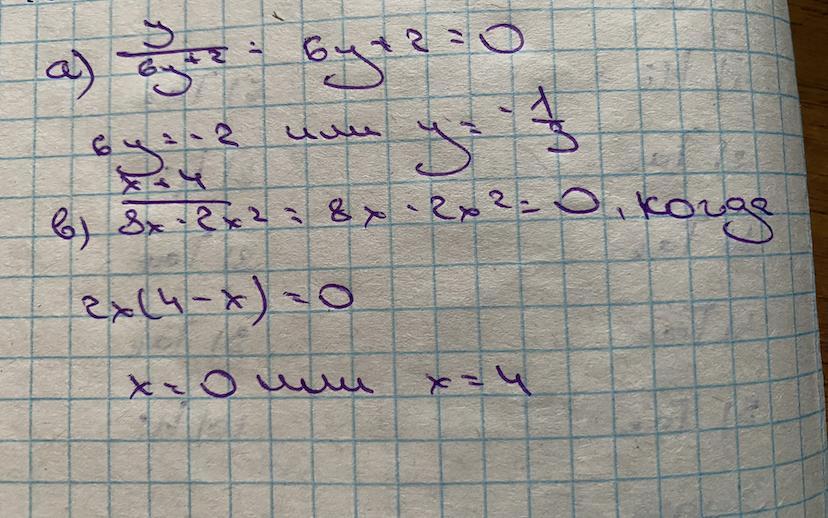 а) y/(6y+2) = 6y+2=0
6y=-2 или y=-1/3
в) (x+4)/(8x-2x²) = 8x-2x²=0, когда
2x(4-x)=0
x=0 или x=4